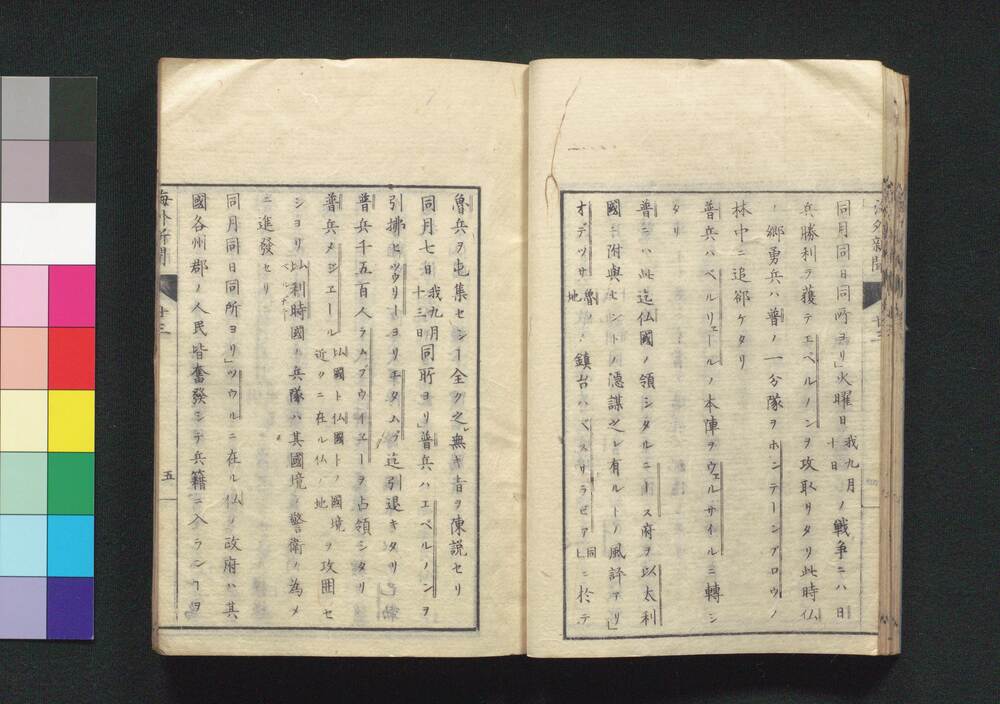 海外新聞
廿三
同月同日同所ヨリ」火曜日我九月十日ノ戦争ニハ日
兵勝利ヲ獲テエペルノンヲ攻取リタリ此時仏
ノ郷勇兵ハ普ノ一分隊ヲホンテーンブロウノ
林中ニ追郤ケタリ
普兵ハベルリェールノ本陣ヲウェルサイルニ轉シ
タリ
普ニハ此迄仏國ノ領シタルニース府ヲ以太利
國ニ附與セントノ慿謀之レ有ルトノ風評アリ」
オデッサ魯地ノ鎮台ハベスサラビア同上ニ於テ
魯兵ヲ屯集セシー全ク之レ無キ旨ヲ陳説セリ
同月七日我九月十三日同所ヨリ」普兵ハエペルノンヲ
引拂ヒツウリーヨリエタムプ迄引退キタリ
普兵千五百人ラムブウイエーヲ占領シタリ
普兵メジエール以國ト仏國トノ國境近クニ在ル仏ノ地ヲ攻囲セ
シヨリ以利時國ノ兵隊ハ其國境ノ警衛ノ為メ
ベルヂー
ニ進發セリ
同月同日同所ヨリ」ツウルニ在ル仏ノ政府ハ其
國各州郡ノ人民皆奮發シテ兵籍ニ入ランヿヲ
海外新聞
廿三
五